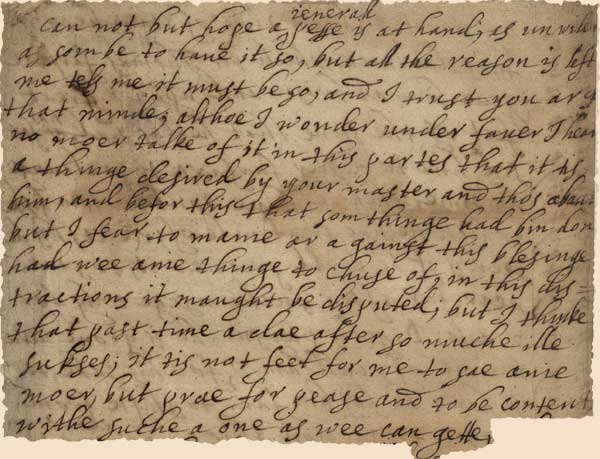 ieneral
can not but hope a pesse is at hand, as unwilen
as sombe to haue it so, but all the reason is left
me tels me it must be so, and I trust you ar of
that minde, althoe I wonder under fauer I hear
no moer talke of it in this partes that it is
a thinge desired by your master and thos about
him, and befor this that som thinge had bin don
but I fear to manie ar a gainst this blesinge
had wee anie thinge to chuse of, in this dis=
tractions it maught be disputed; but I thinke
that past time a dae after so muche ille
sukses; it tis not feet for me to sae anie
moer, but prae for pease and to be content
withe suche a one as wee can gette,